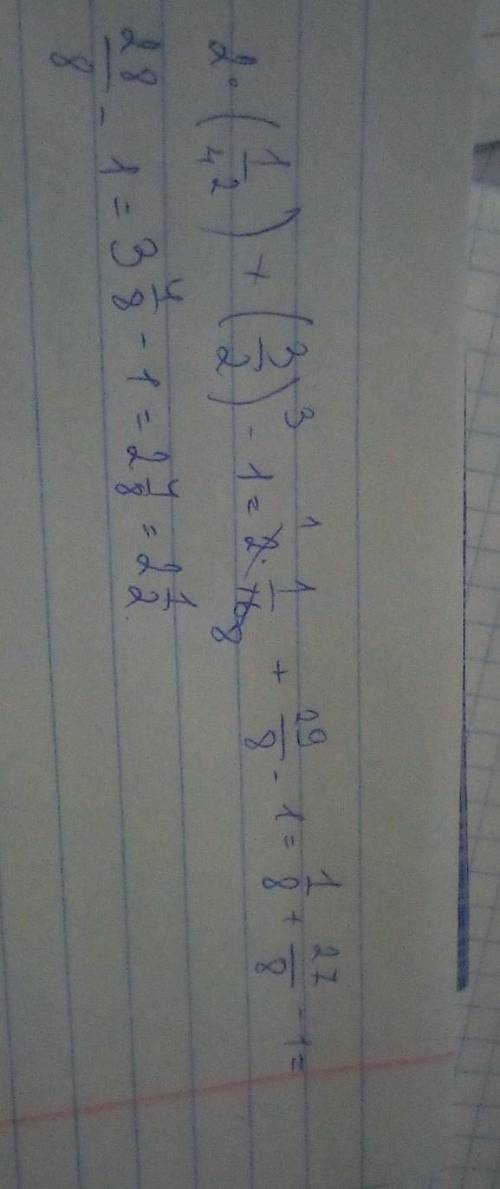 2·(1/4²)+(3/2)³-1=2·1/16 1 8+29/8-1=1/8+27/8-1=
28/8-1=3 4/8-1=2 4/8=2 1/2.